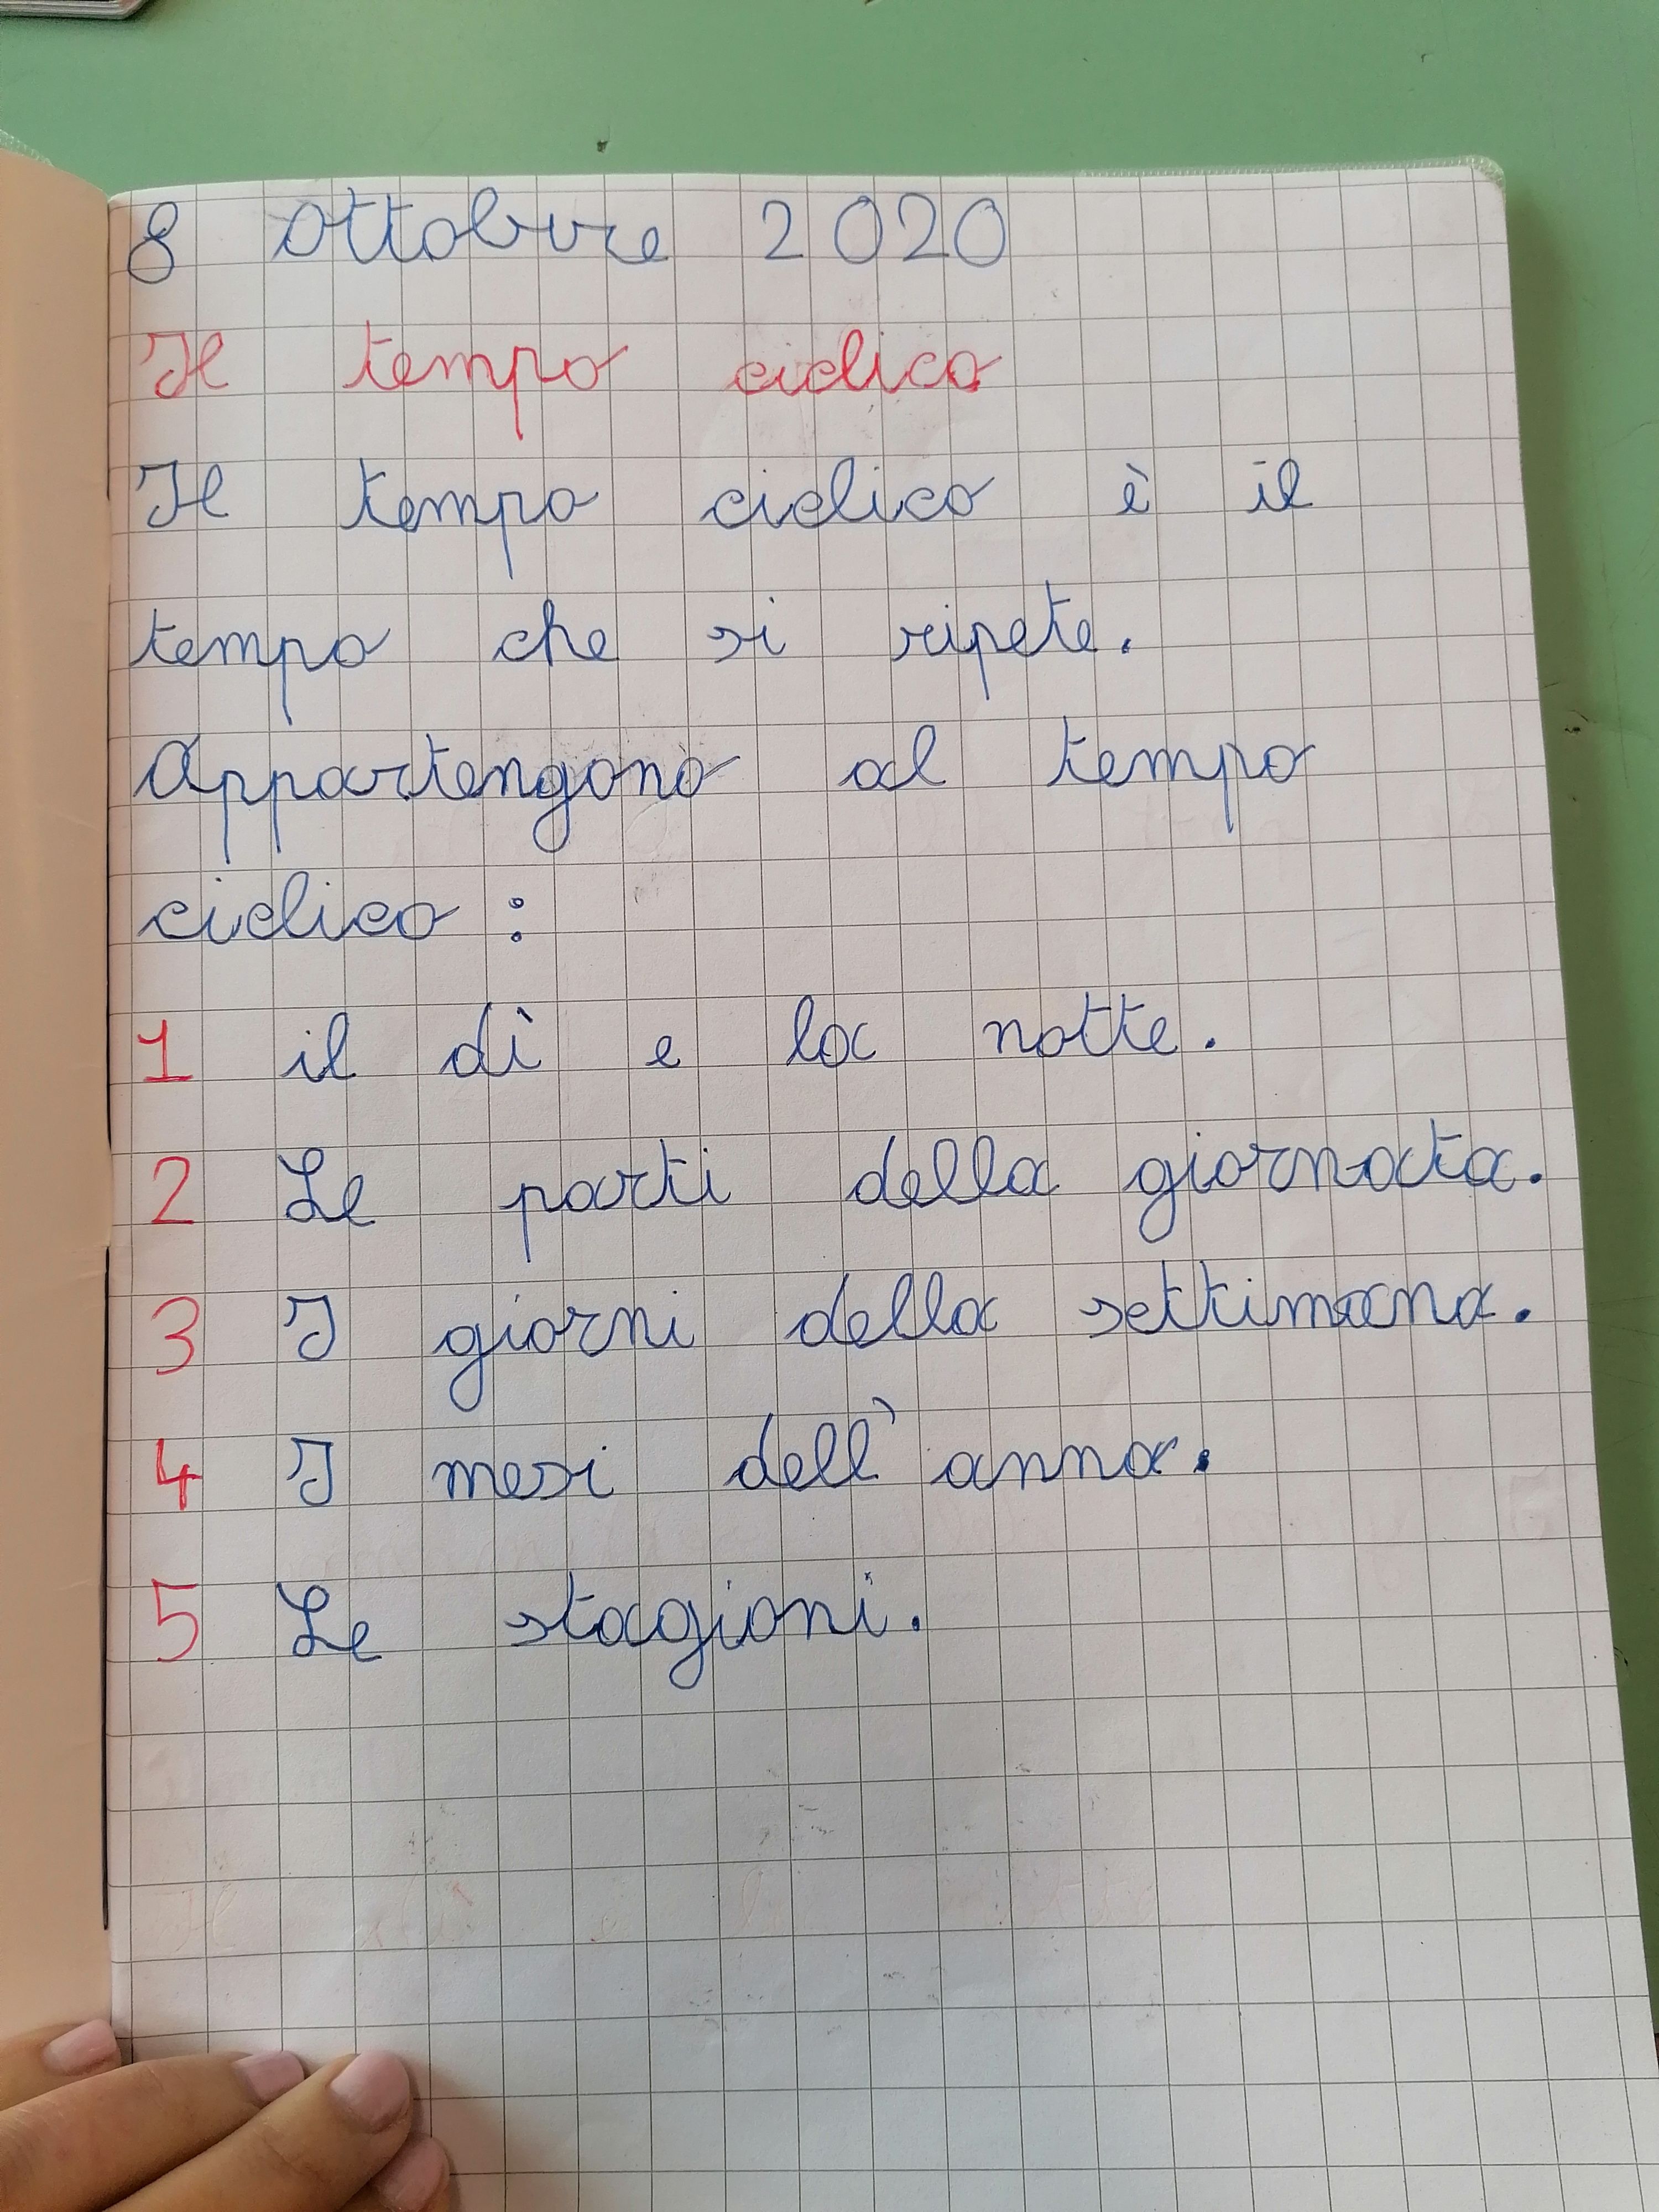 8 ottobre 2020
Il tempo ciclico
Il tempo ciclico è il
tempo che si ripete.
Appartengono al tempo
ciclico:
1 il dì e la notte.
2 Le parti della giornata.
3 I giorni della settimana.
4 I mesi dell'anno.
5 Le stagioni.